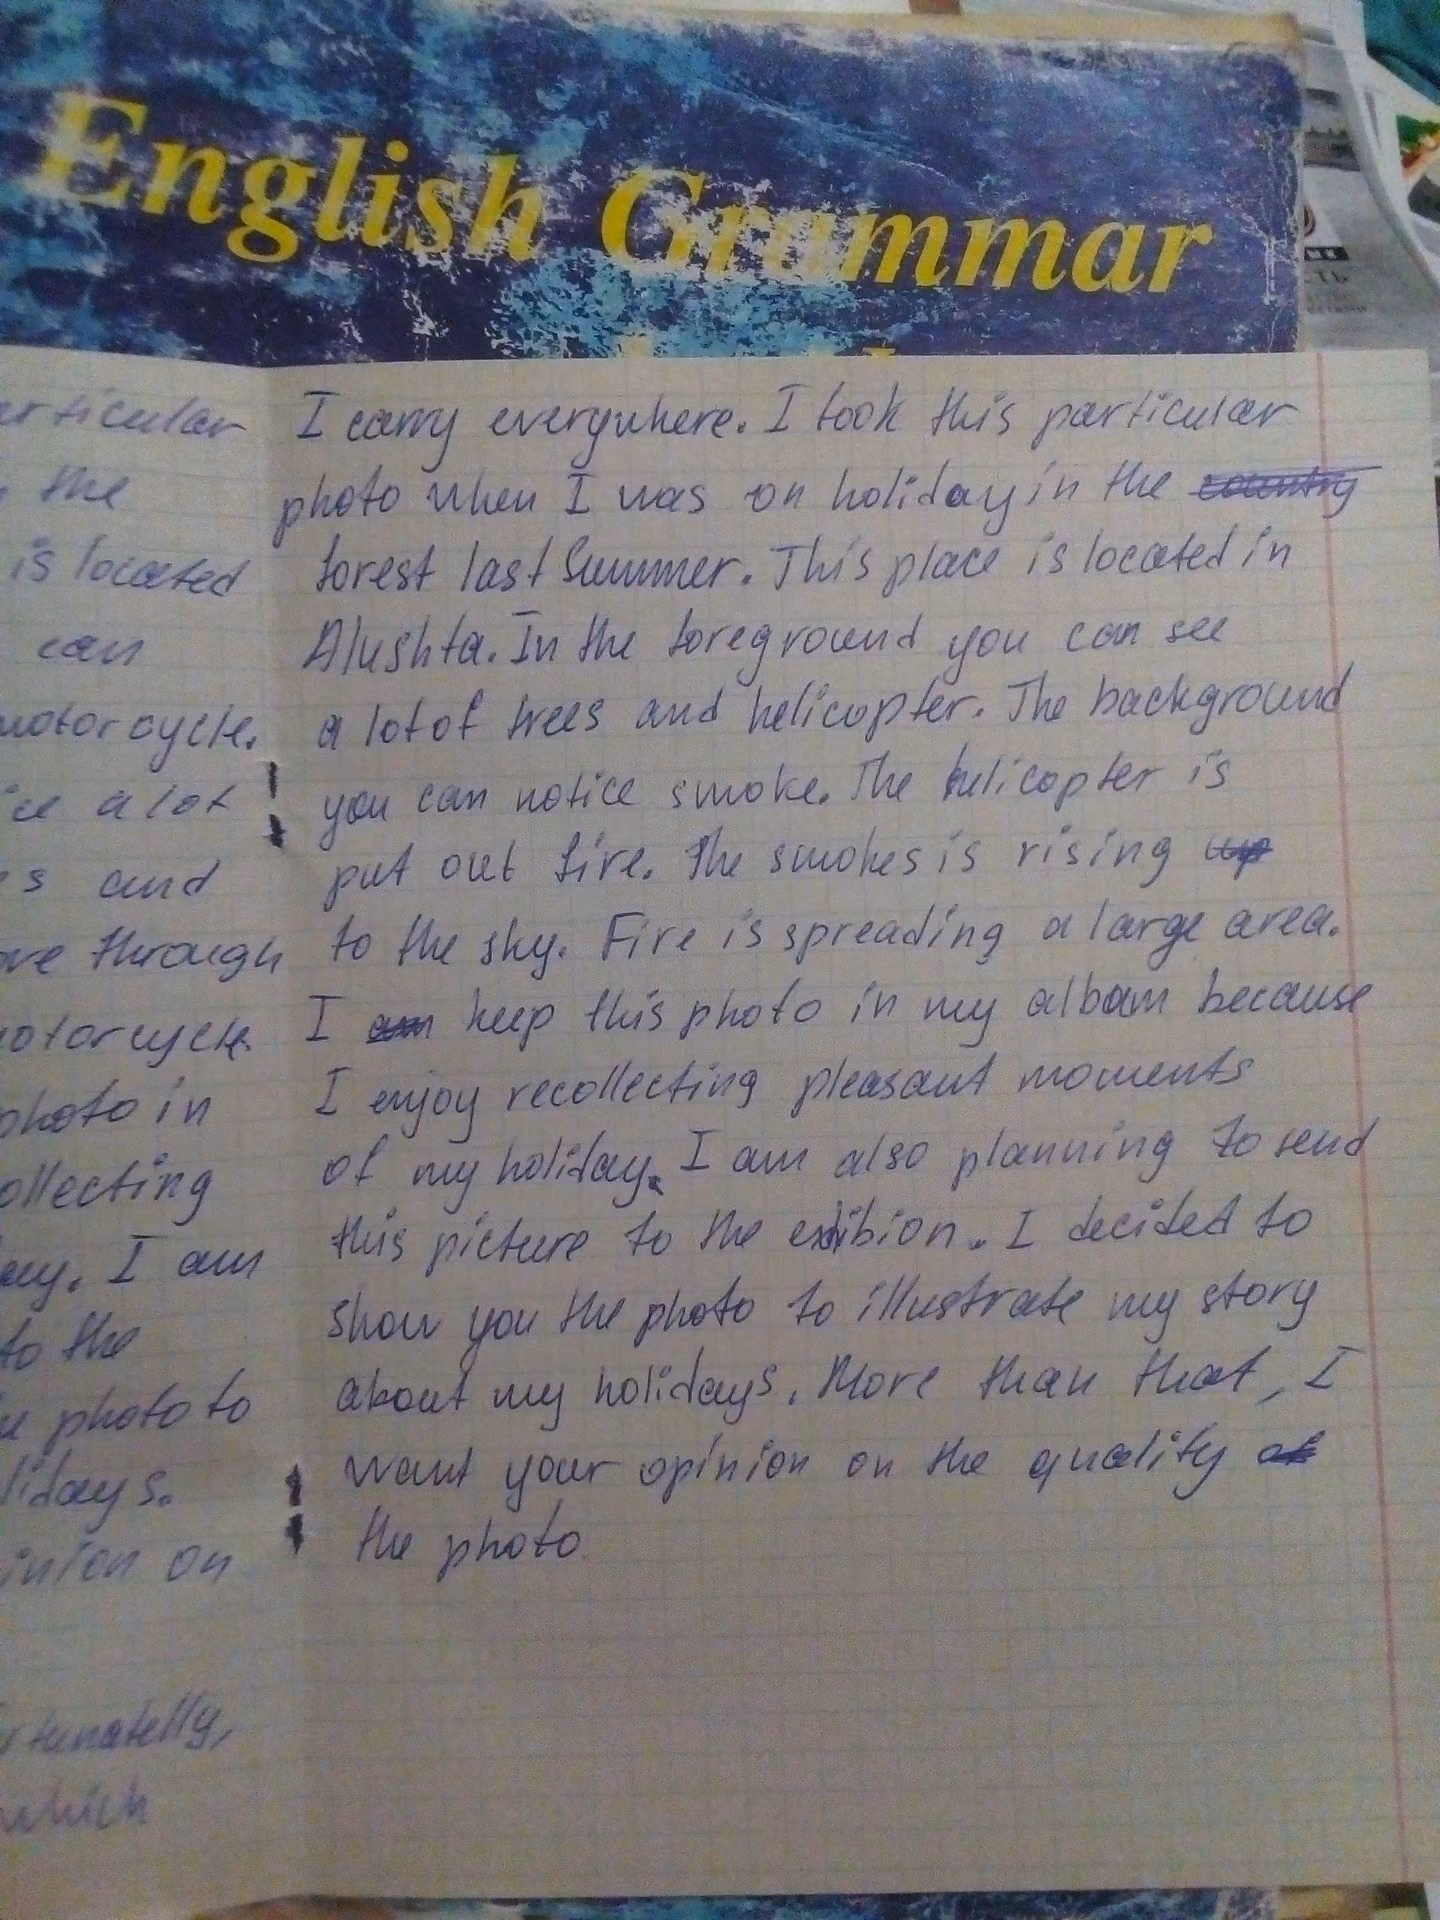 English Grammar
articular
the
is located
can
motorcycle.
ce a lot
s and
ve through
otorcycle.
photo in
ollecting
ay. I am
to the
photo to
lidays.
inion on
rtunatelly,
which
I carry everywhere. I took this particular
photo when I was on holiday in the country
forest last Summer. This place is located in
Alushta. In the foreground you can see
a lot of trees and helicopter. The background
you can notice smoke. The helicopter is
put out fire. The smokes is rising up
to the sky. Fire is spreading a large area.
I am keep this photo in my albam because
I enjoy recollecting pleasant moments
of my holiday. I am also planning to send
this picture to the exhibion. I decided to
show you the photo to illustrate my story
about my holidays. More than that, I
want your opinion on the quality of
the photo